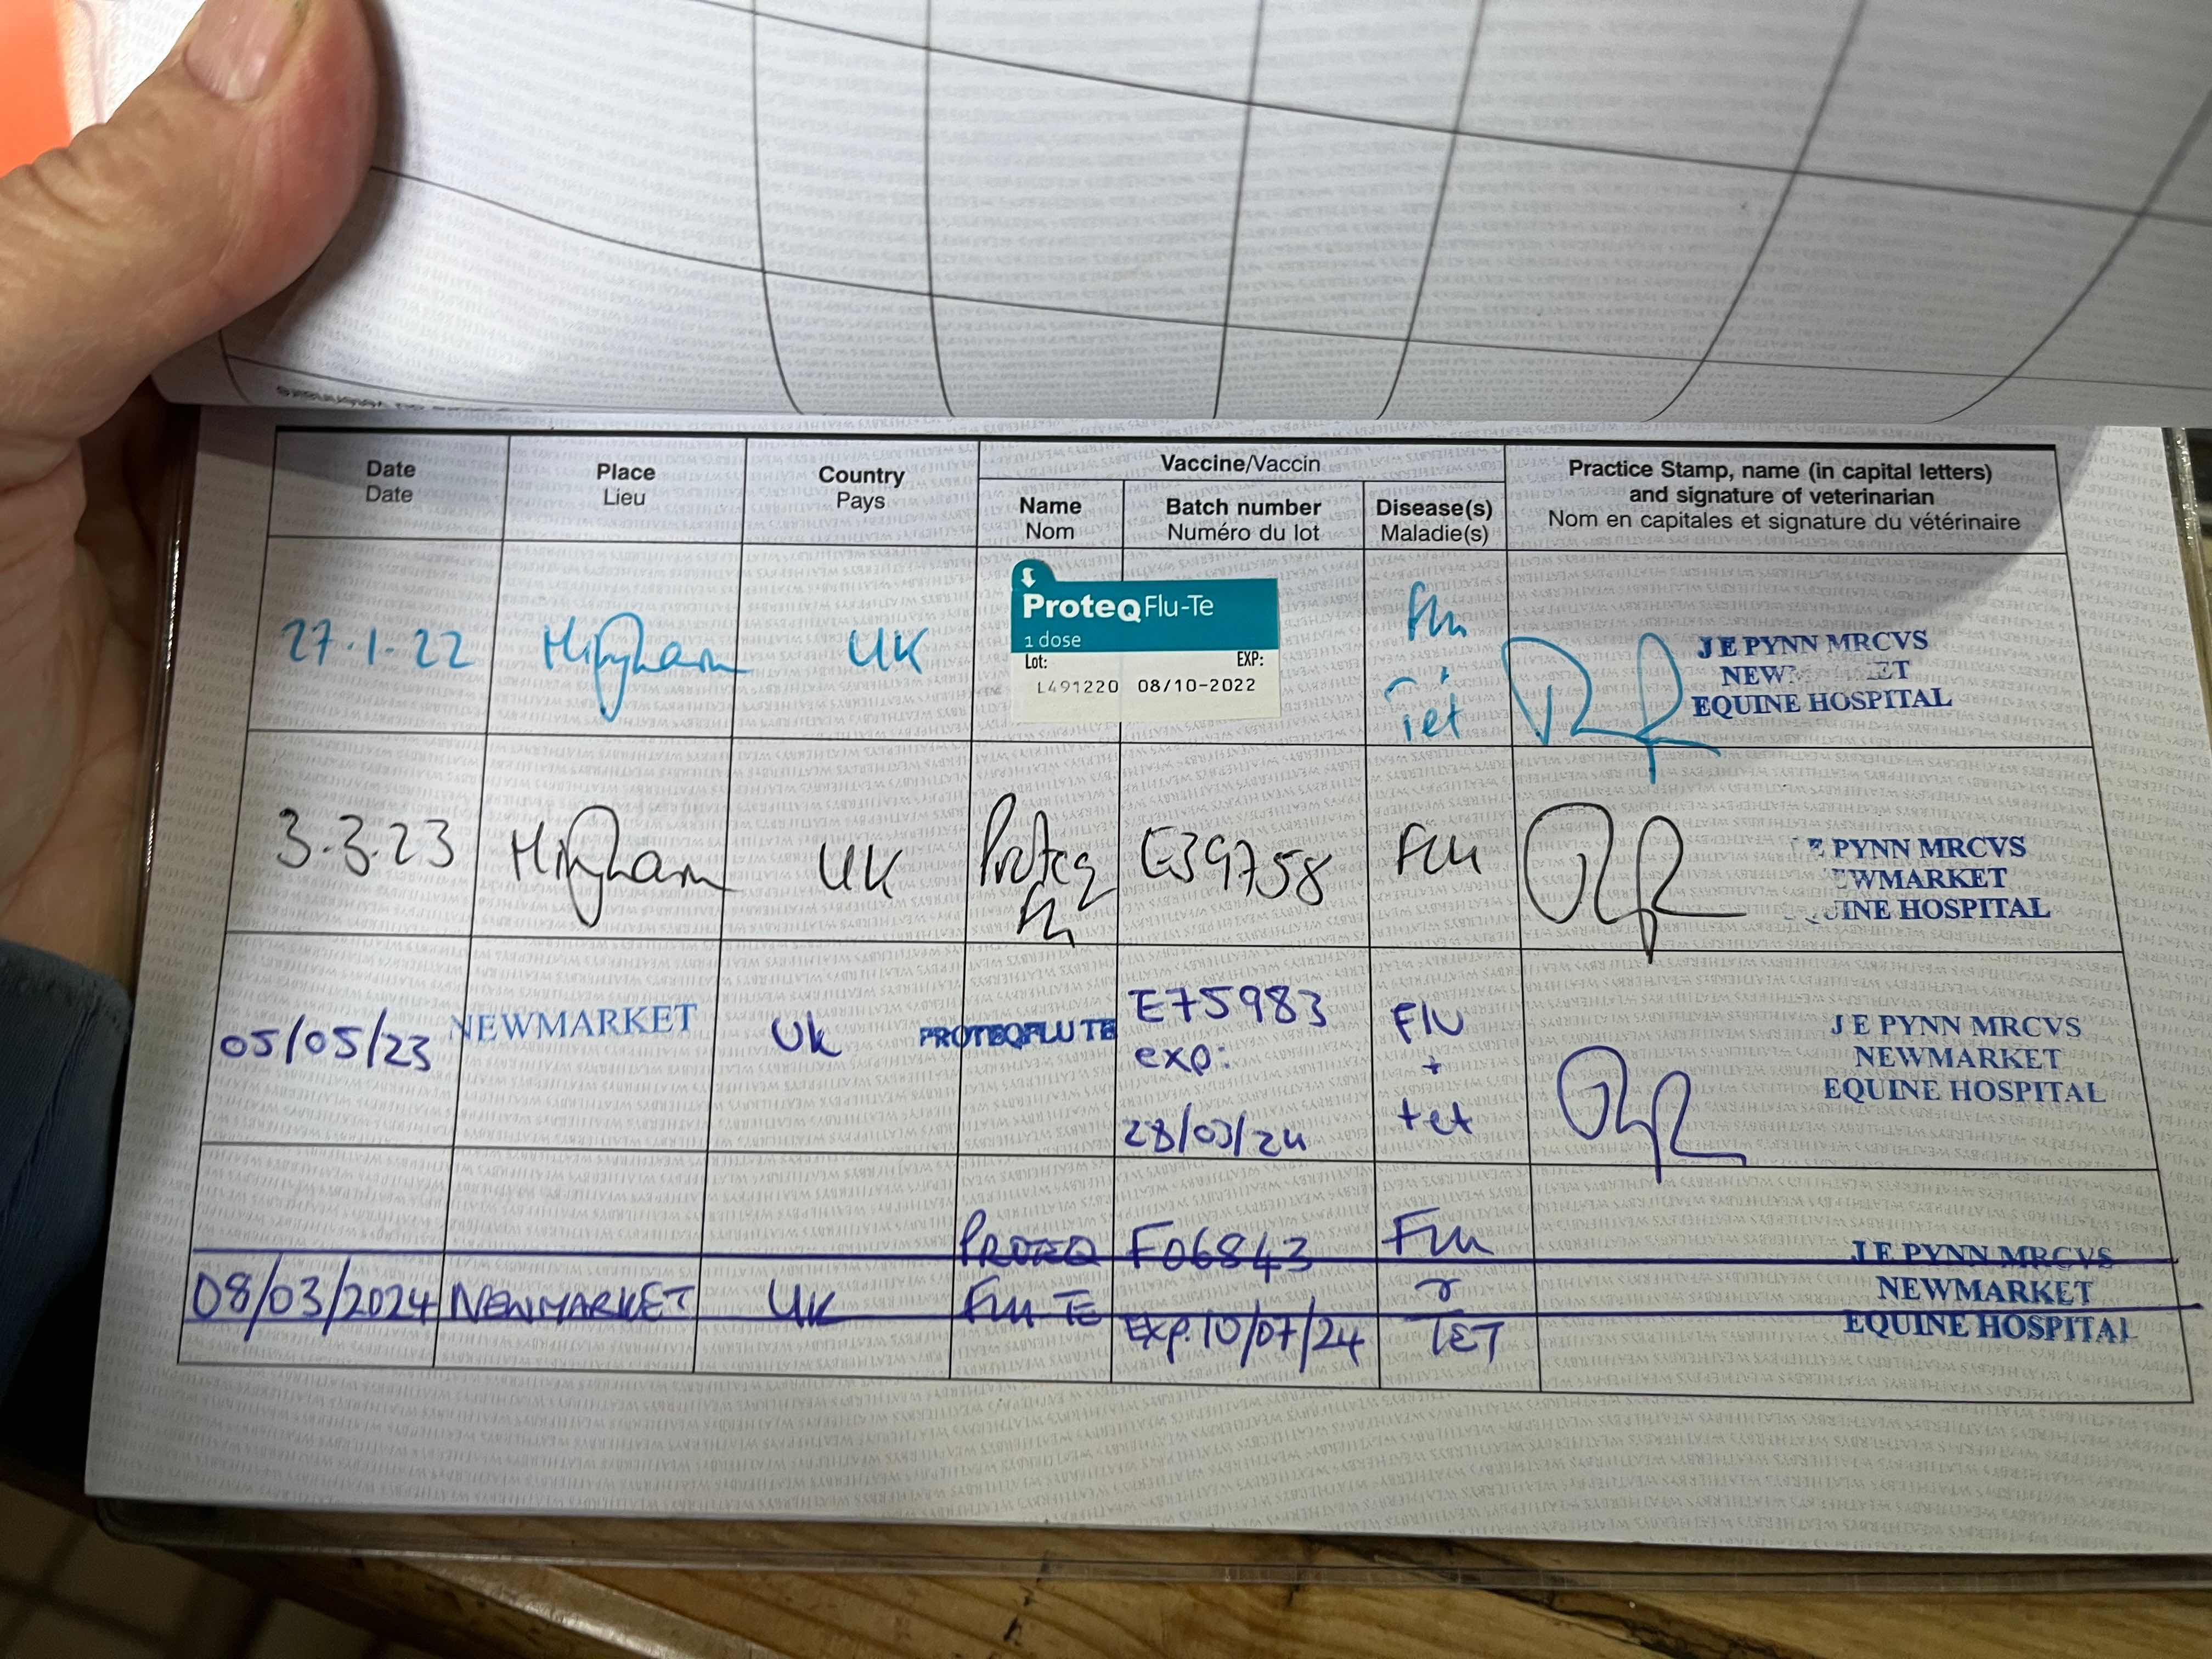 Date
Date
Place
Lieu
Country
Pays
Vaccine/Vaccin
Name
Nom
Batch number
Numéro du lot
Disease(s)
Maladie(s)
Practice Stamp, name (in capital letters)
and signature of veterinarian
Nom en capitales et signature du vétérinaire
27.1.22
UK
ProteqFlu-Te
1 dose
Lot:
EXP:
L491220 08/10-2022
Flu
Tet
J E PYNN MRCVS
EQUINE HOSPITAL
3.3.23
UK
Proteq
Flu
E39758
Flu
E PYNN MRCVS
EWMARKET
UINE HOSPITAL
05/05/23
NEWMARKET
Uk
PROTEQFLU TE
E75983
exp:
28/03/24
Flu
+
tet
J E PYNN MRCVS
NEWMARKET
EQUINE HOSPITAL
08/03/2024
NEWMARKET
UK
Flu TE
F06843
Exp. 10/07/24
Flu
TET
J E PYNN MRCVS
NEWMARKET
EQUINE HOSPITAL